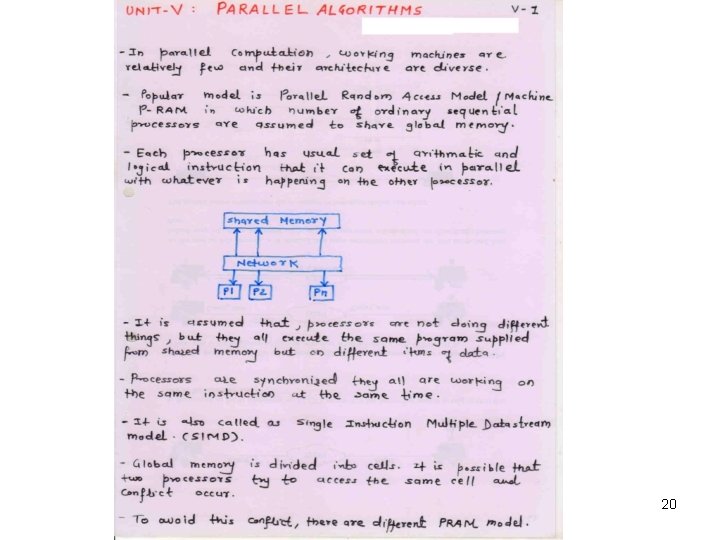 UNIT-V : PARALLEL ALGORITHMS V-1
- In parallel Computation , working machines are
relatively few and their architecture are diverse.
- Popular model is Parallel Random Access Model / Machine
P-RAM in which number of ordinary sequential
processors are assumed to share global memory.
- Each processor has usual set of arithmatic and
logical instruction that it can execute in parallel
with whatever is happening on the other processor.
Shared Memory
Network
P1 P2 Pn
- It is assumed that , processors are not doing different
things , but they all execute the same program supplied
from shared memory but on different items of data.
- Processors are synchronized they all are working on
the same instruction at the same time.
- It is also called as Single Instruction Multiple Datastream
model. (SIMD).
- Global memory is divided into cells. It is possible that
two processors try to access the same cell and
Conflict occur.
- To avoid this conflict, there are different PRAM model.
20